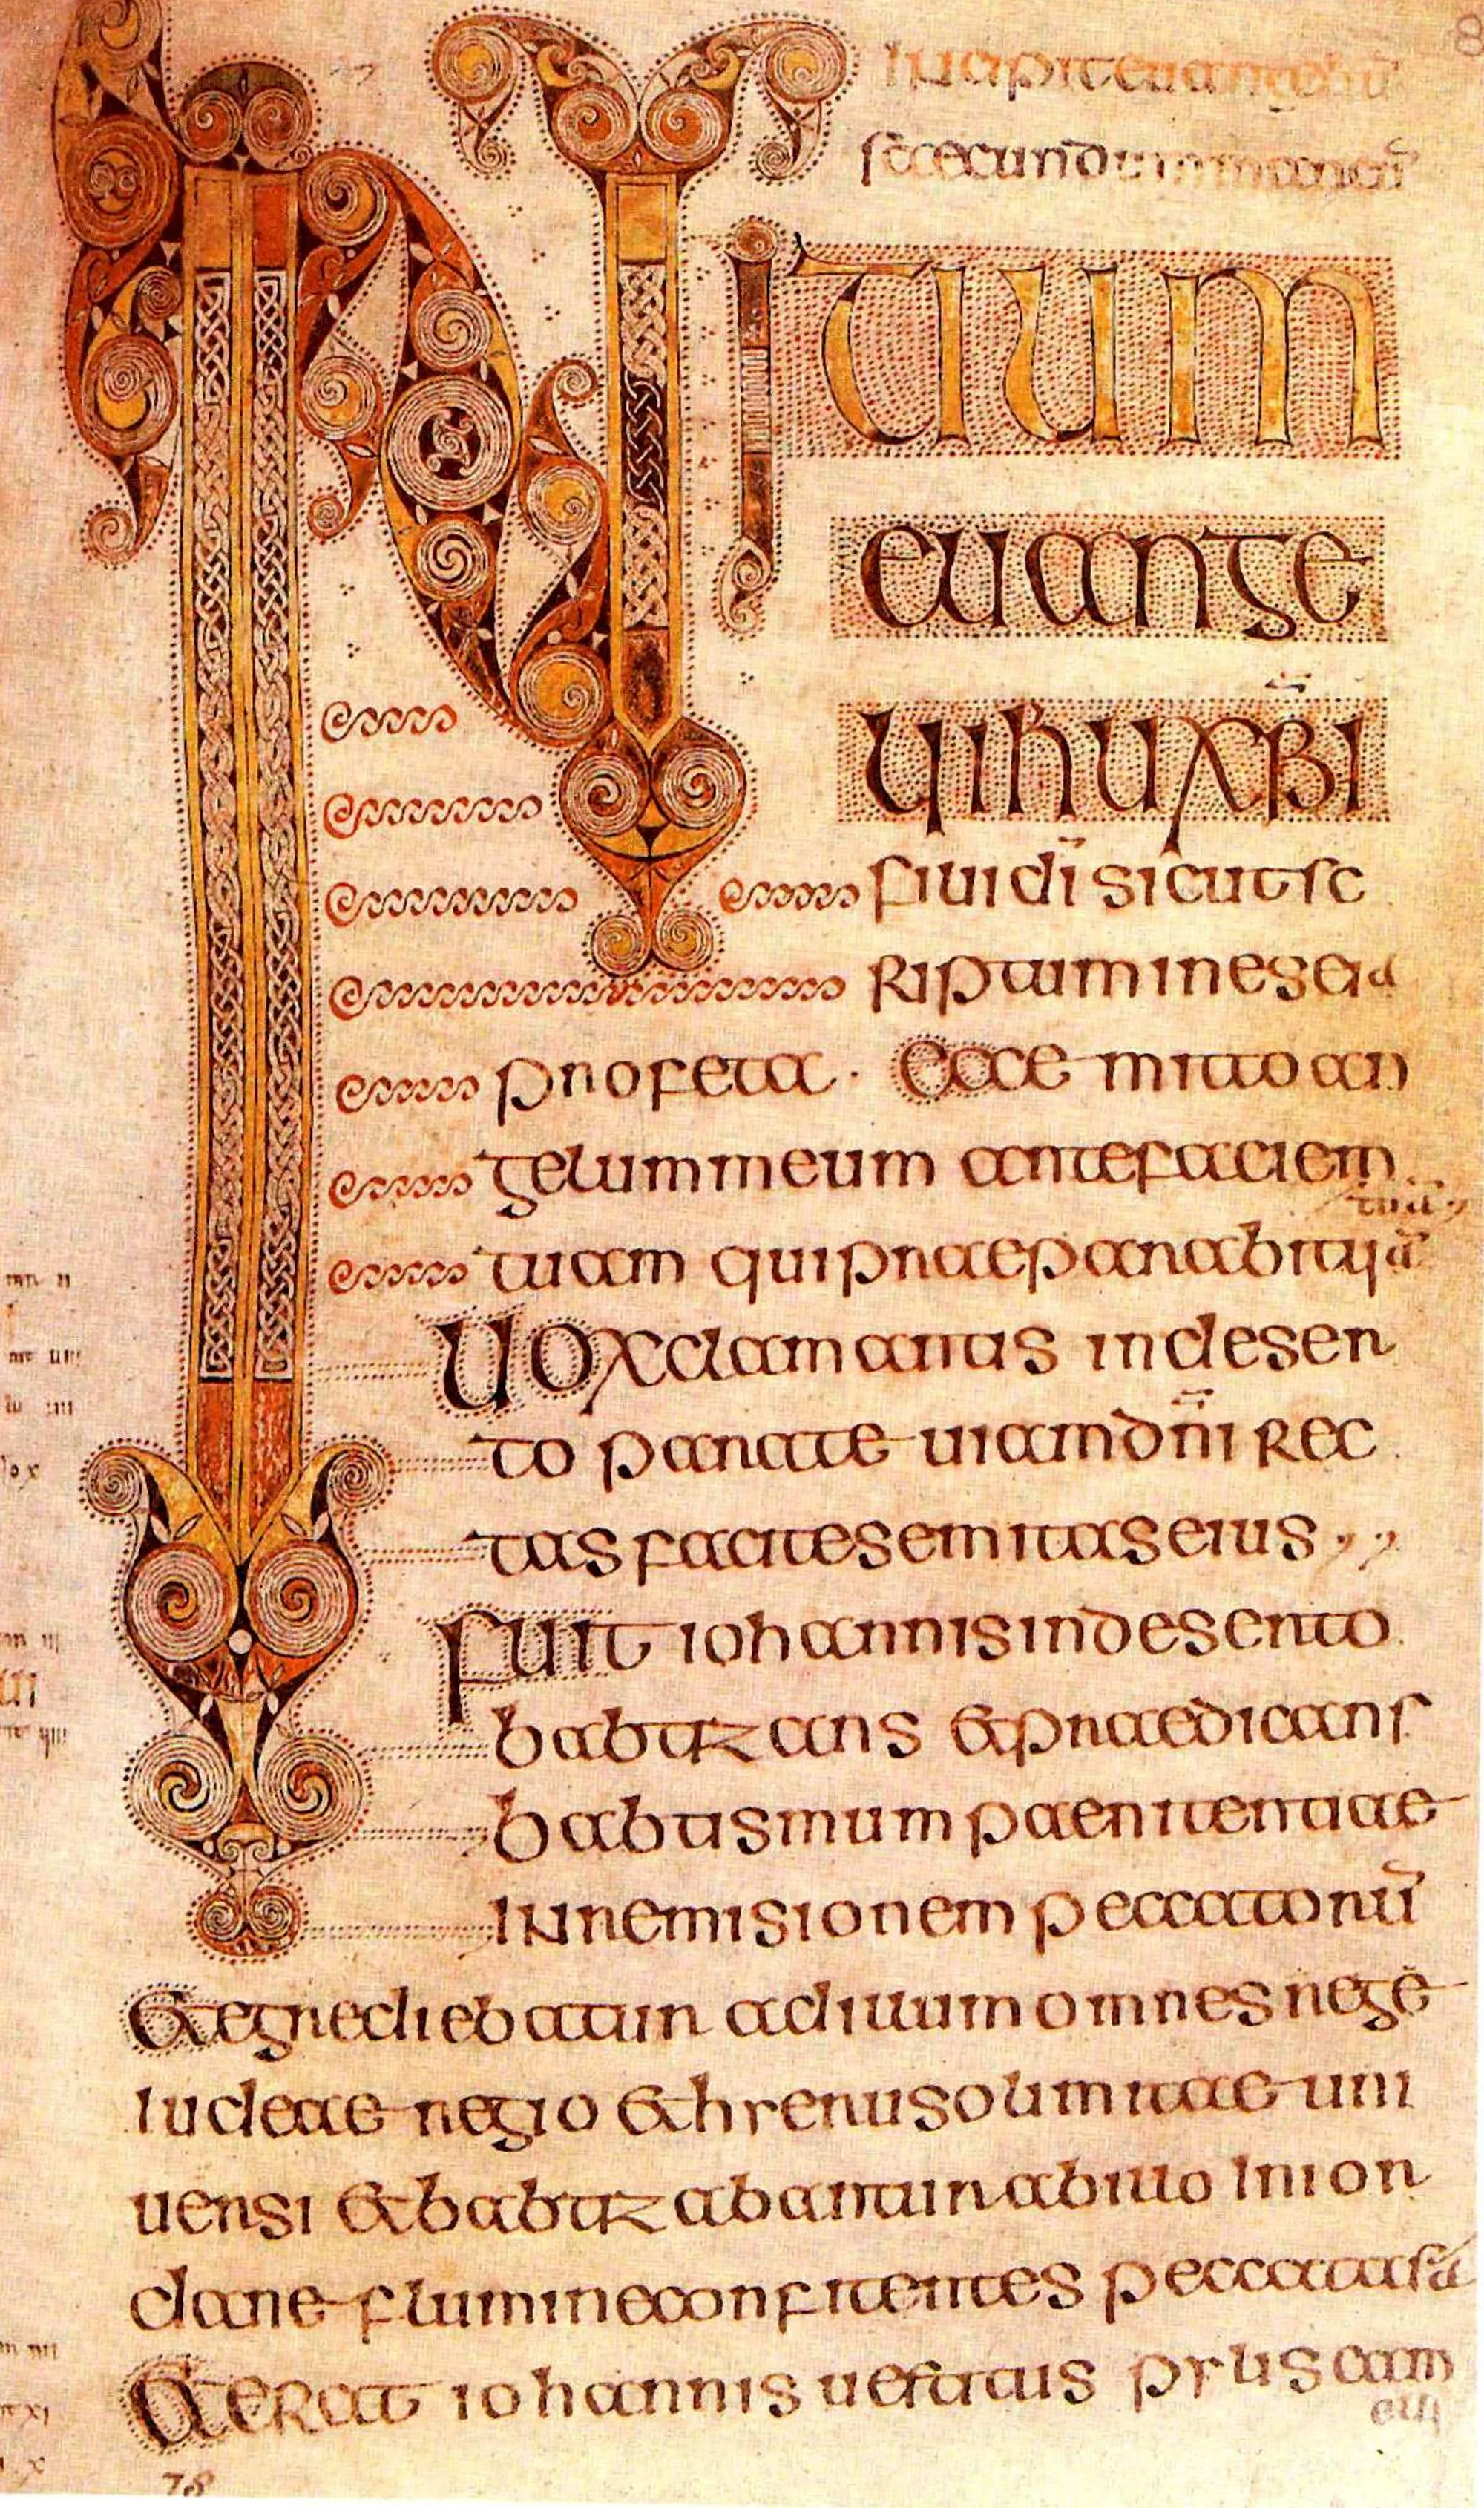 Incipit euangeliū
INITIUM
euange
lii ihu xp̄i
filii dī sicut sc
riptum in eseia
profeta · Ecce mitto an
gelum meum ante faciem
tuā
tuam qui praeparabit uiā
Uox clamantis in deser
to parate uiam dn̄i rec
tas facite semitas eius
fuit iohannis in deserto
babtizans & praedicans
babtismum paenitentiae
IN remisionem peccatorū
& egrediebatur ad illum omnes rege
Iudeae regio & hyerusolimitae uni
uersi & babtizabantur ab illo In ior
dane flumine confitentes peccata sua
& erat iohannis uestitus pylis cam
eli
78